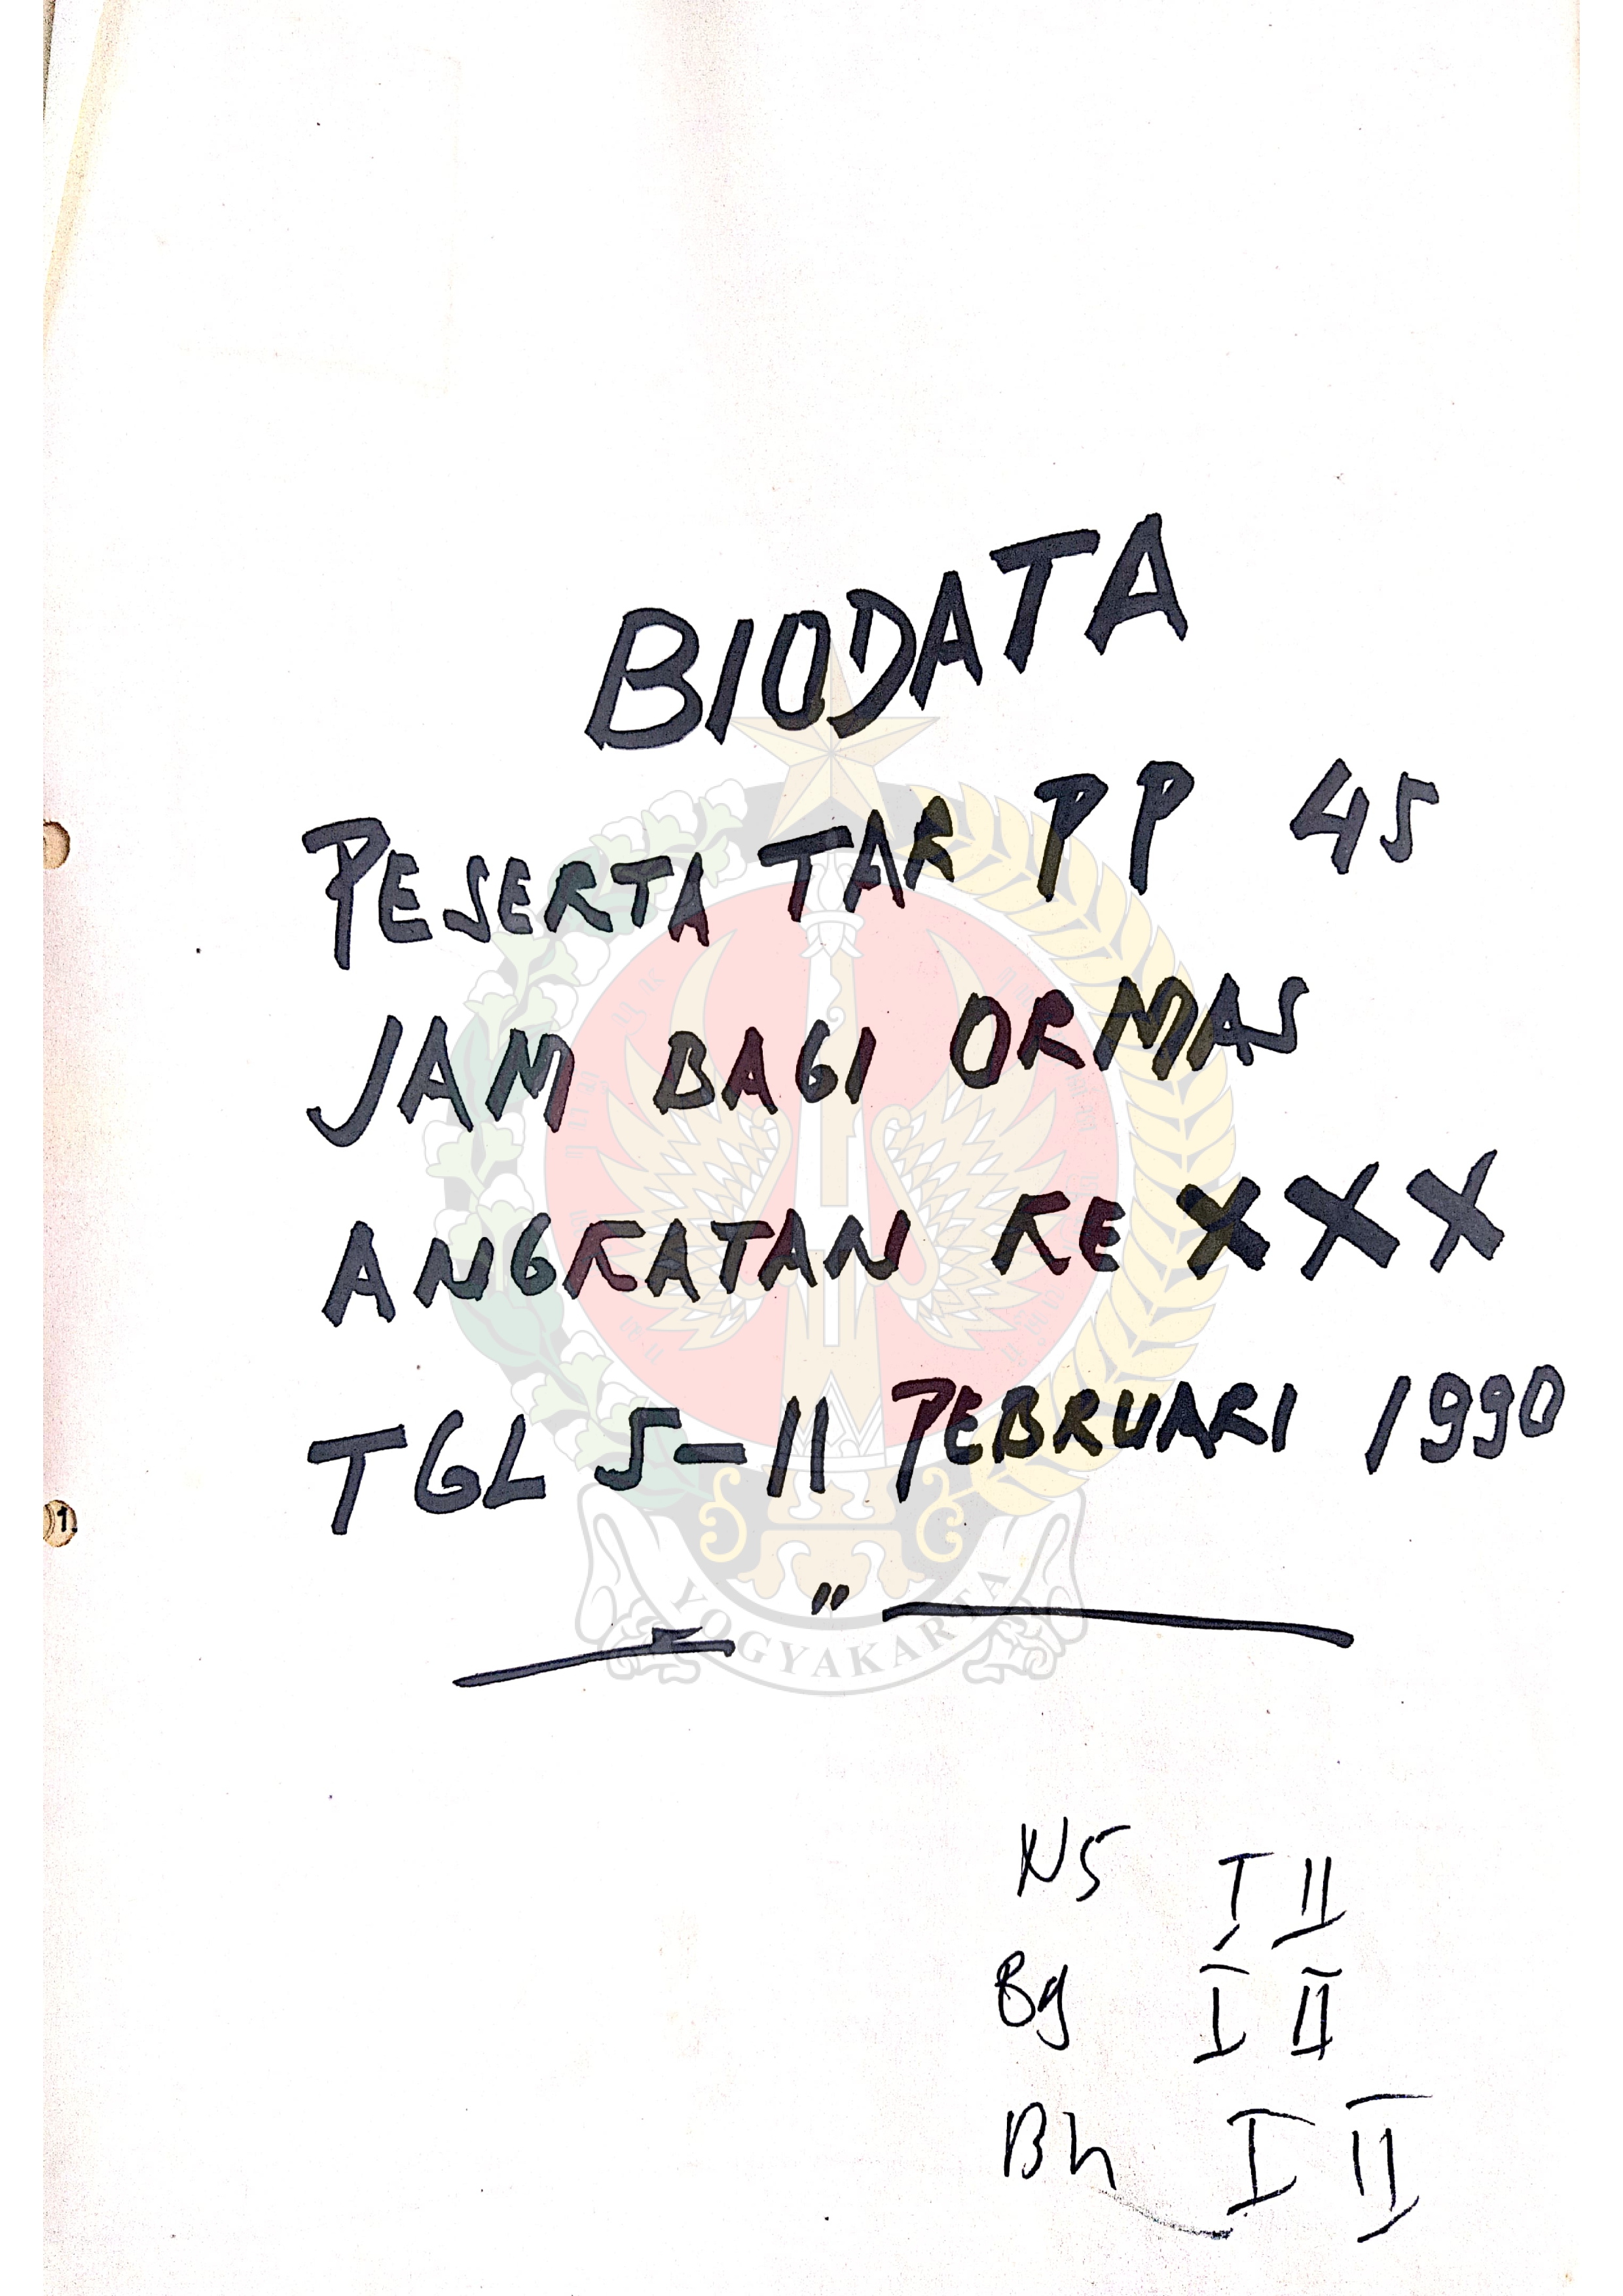 BIODATA
PESERTA TAR PP 45
JAM BAGI ORMAS
ANGKATAN KE XXX
TGL 5-11 PEBRUARI 1990
"
YOGYAKARTA
1.
NS I II
Bg I II
Bh I II